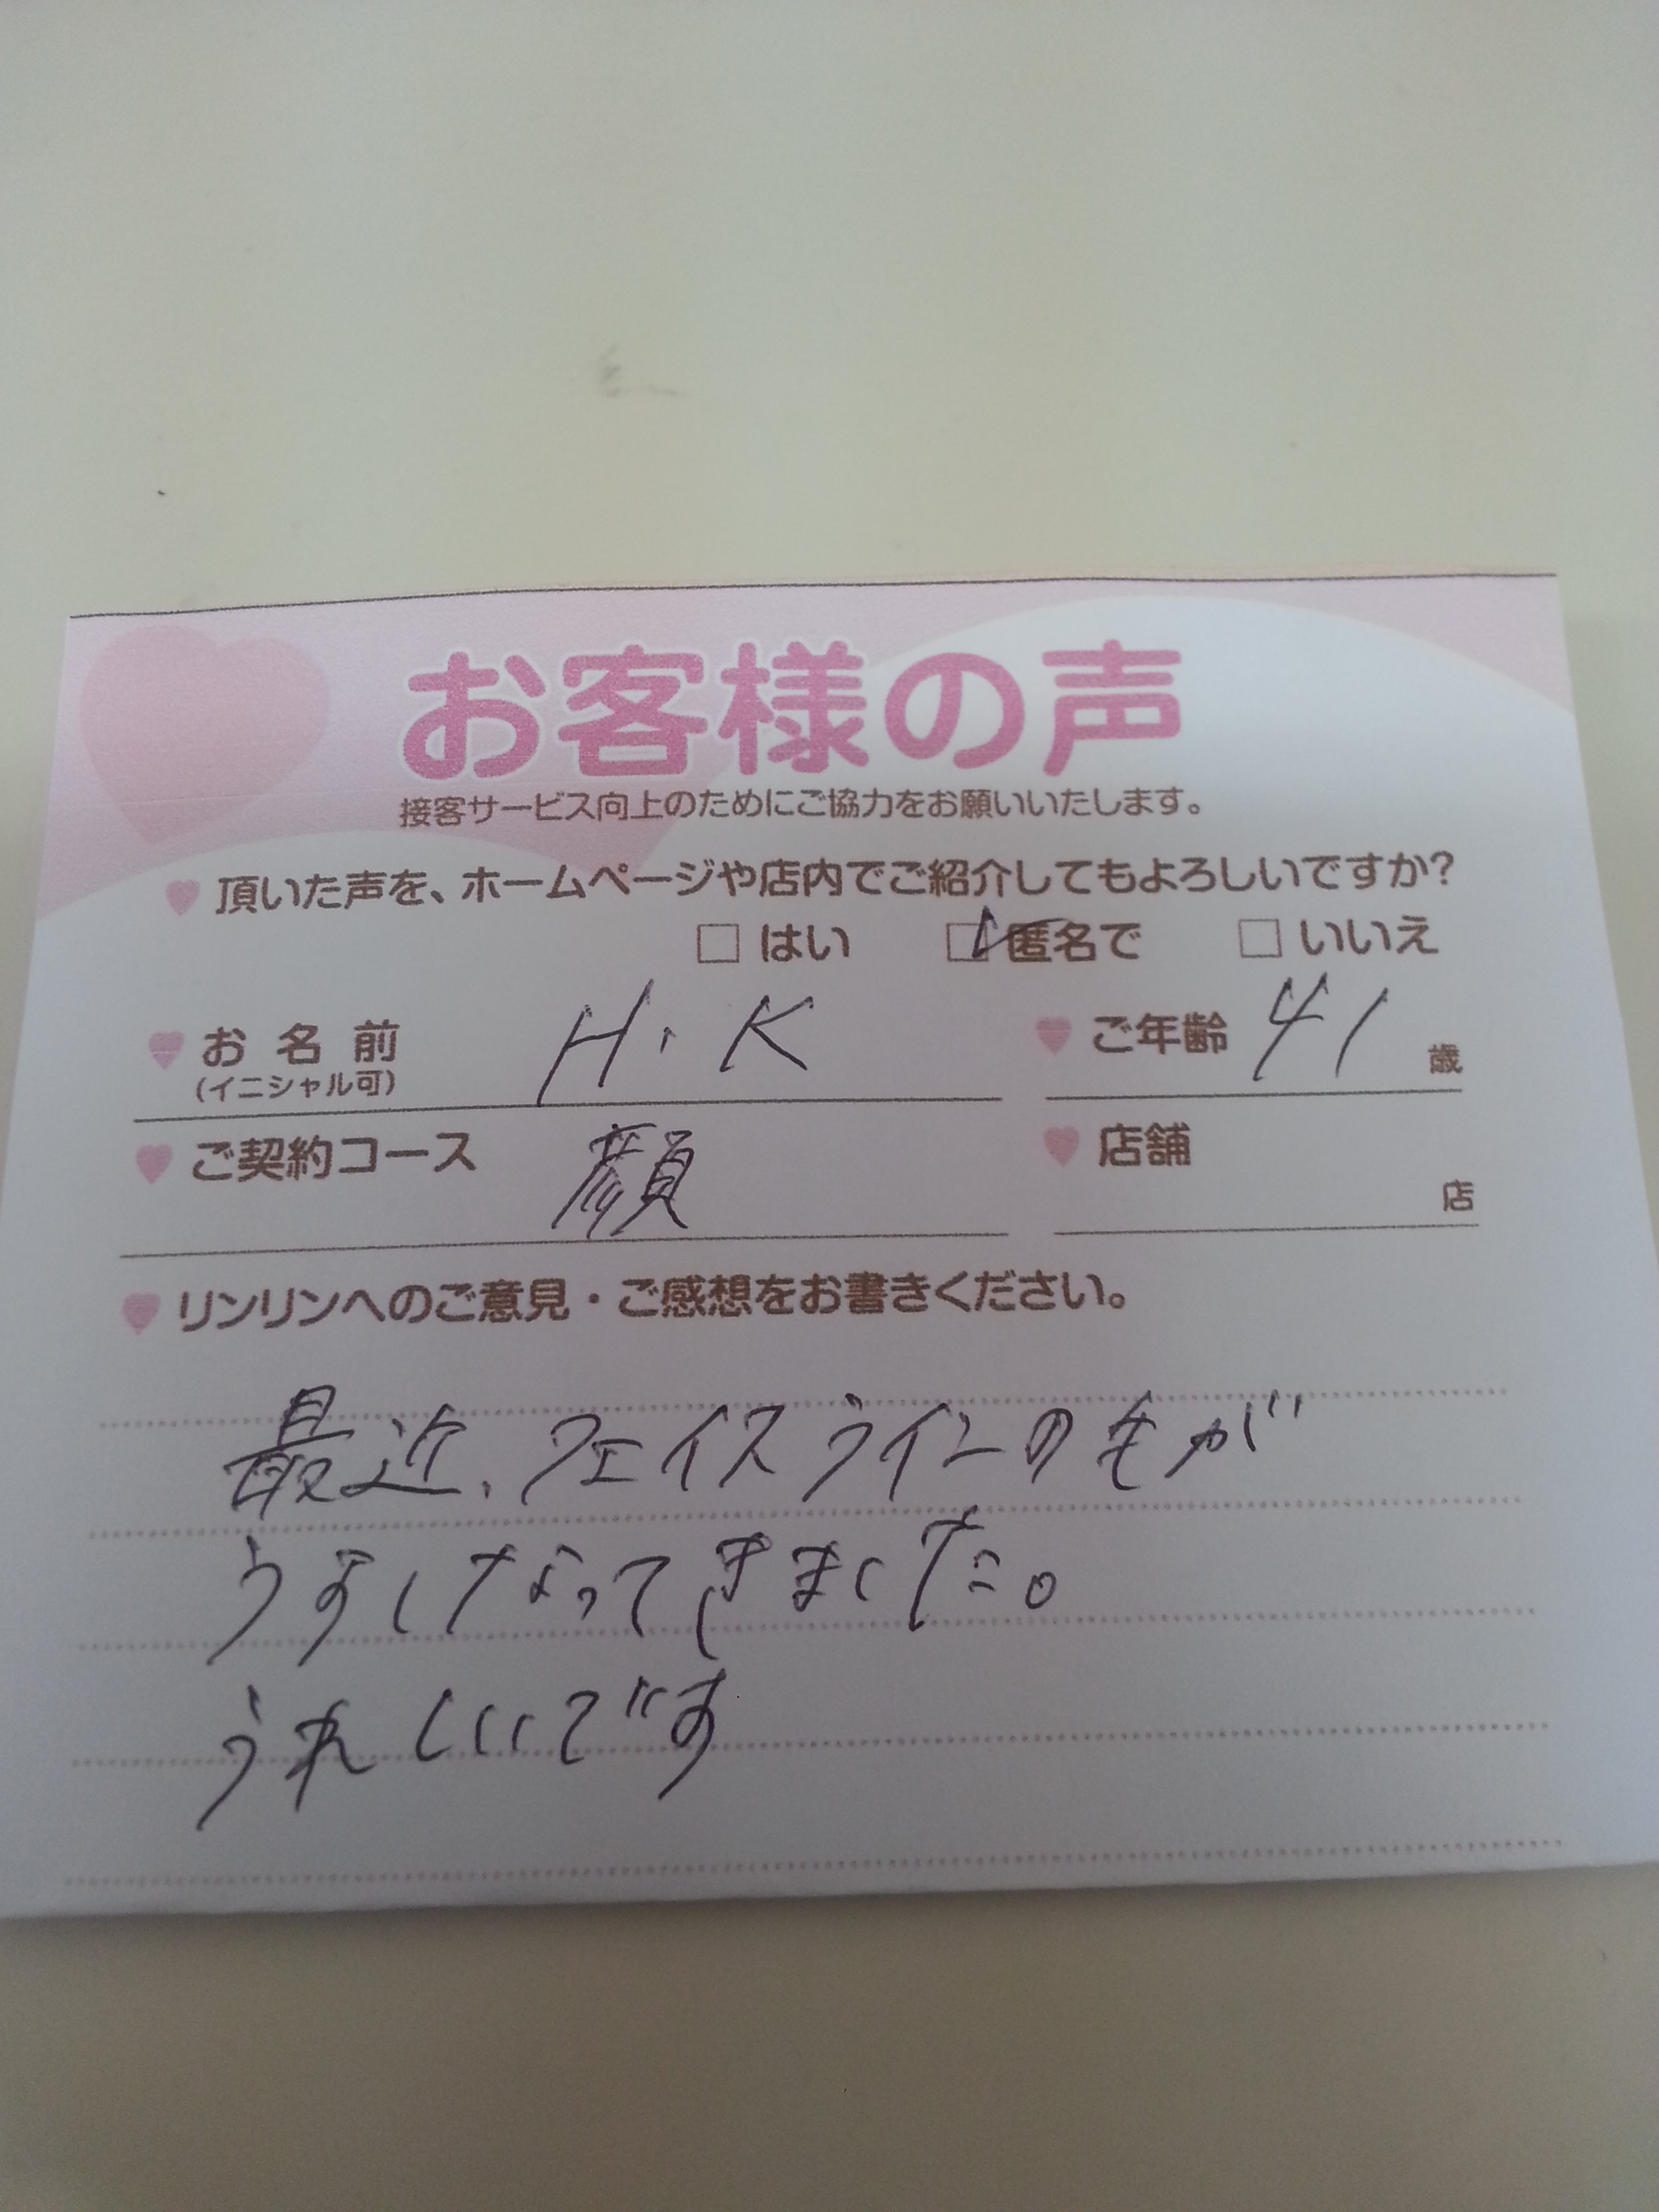 お客様の声
接客サービス向上のためにご協力をお願いいたします。
頂いた声を、ホームページや店内でご紹介してもよろしいですか？
はい 匿名で いいえ
お名前 H・K ご年齢 41 歳
(イニシャル可)
ご契約コース 顔 店舗
店
リンリンへのご意見・ご感想をお書きください。
最近、フェイスラインの毛が
うすくなってきました。
うれしいです